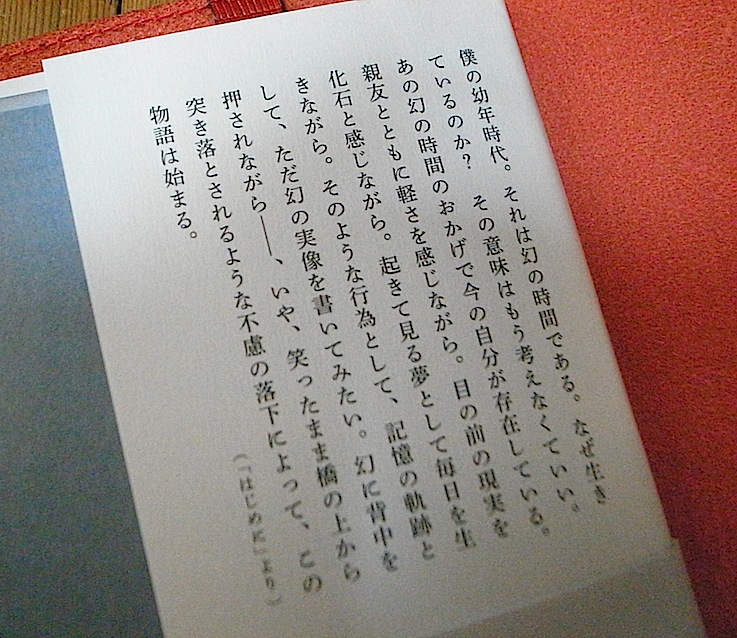 僕の幼年時代。それは幻の時間である。なぜ生き
ているのか？　その意味はもう考えなくていい。
あの幻の時間のおかげで今の自分が存在している。
親友とともに軽さを感じながら。目の前の現実を
化石と感じながら。起きて見る夢として毎日を生
きながら。そのような行為として、記憶の軌跡と
して、ただ幻の実像を書いてみたい。幻に背中を
押されながら――、いや、笑ったまま橋の上から
突き落とされるような不慮の落下によって、この
物語は始まる。
（「はじめに」より）